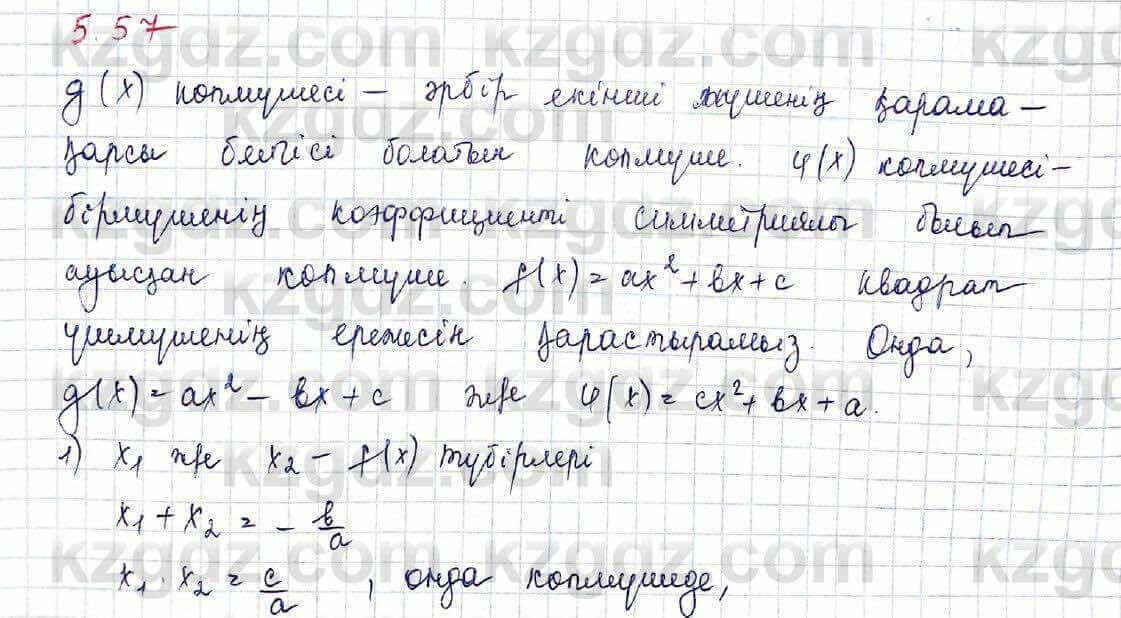 5.57
g(x) көпмүшесі – әрбір екінші мүшенің қарама –
қарсы белгісі болатын көпмүше. φ(x) көпмүшесі –
бірмүшенің коэффициенті симметриялы болып
ауысқан көпмүше. f(x) = ax² + bx + c квадрат
үшмүшенің ережесін қарастырамыз. Онда,
g(x) = ax² – bx + c және φ(x) = cx² + bx + a.
1) x₁ және x₂ – f(x) түбірлері
x₁ + x₂ = – b/a
x₁ · x₂ = c/a , онда көпмүшеде,
kzgdz.com